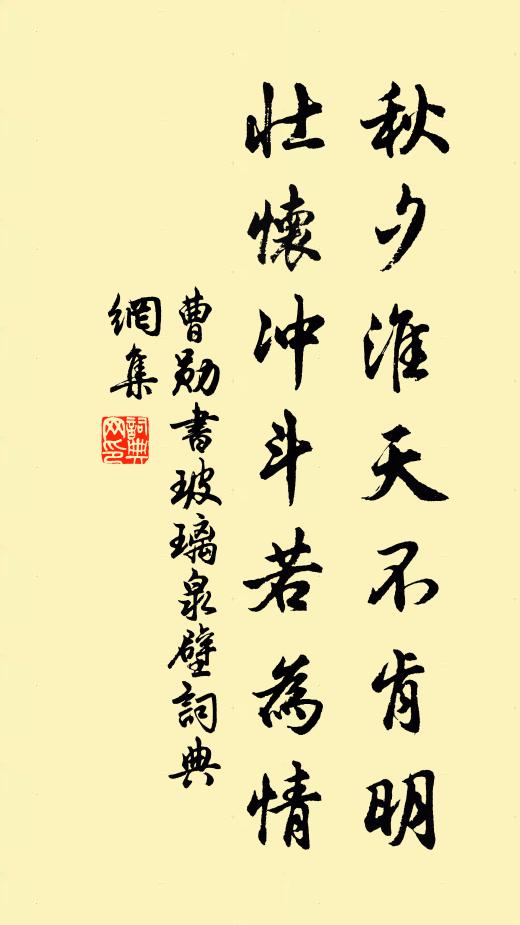 秋夕淮天不肯明
壮懷冲斗若為情
曹勋書玻璃泉壁詞典
網集
詞典
网印